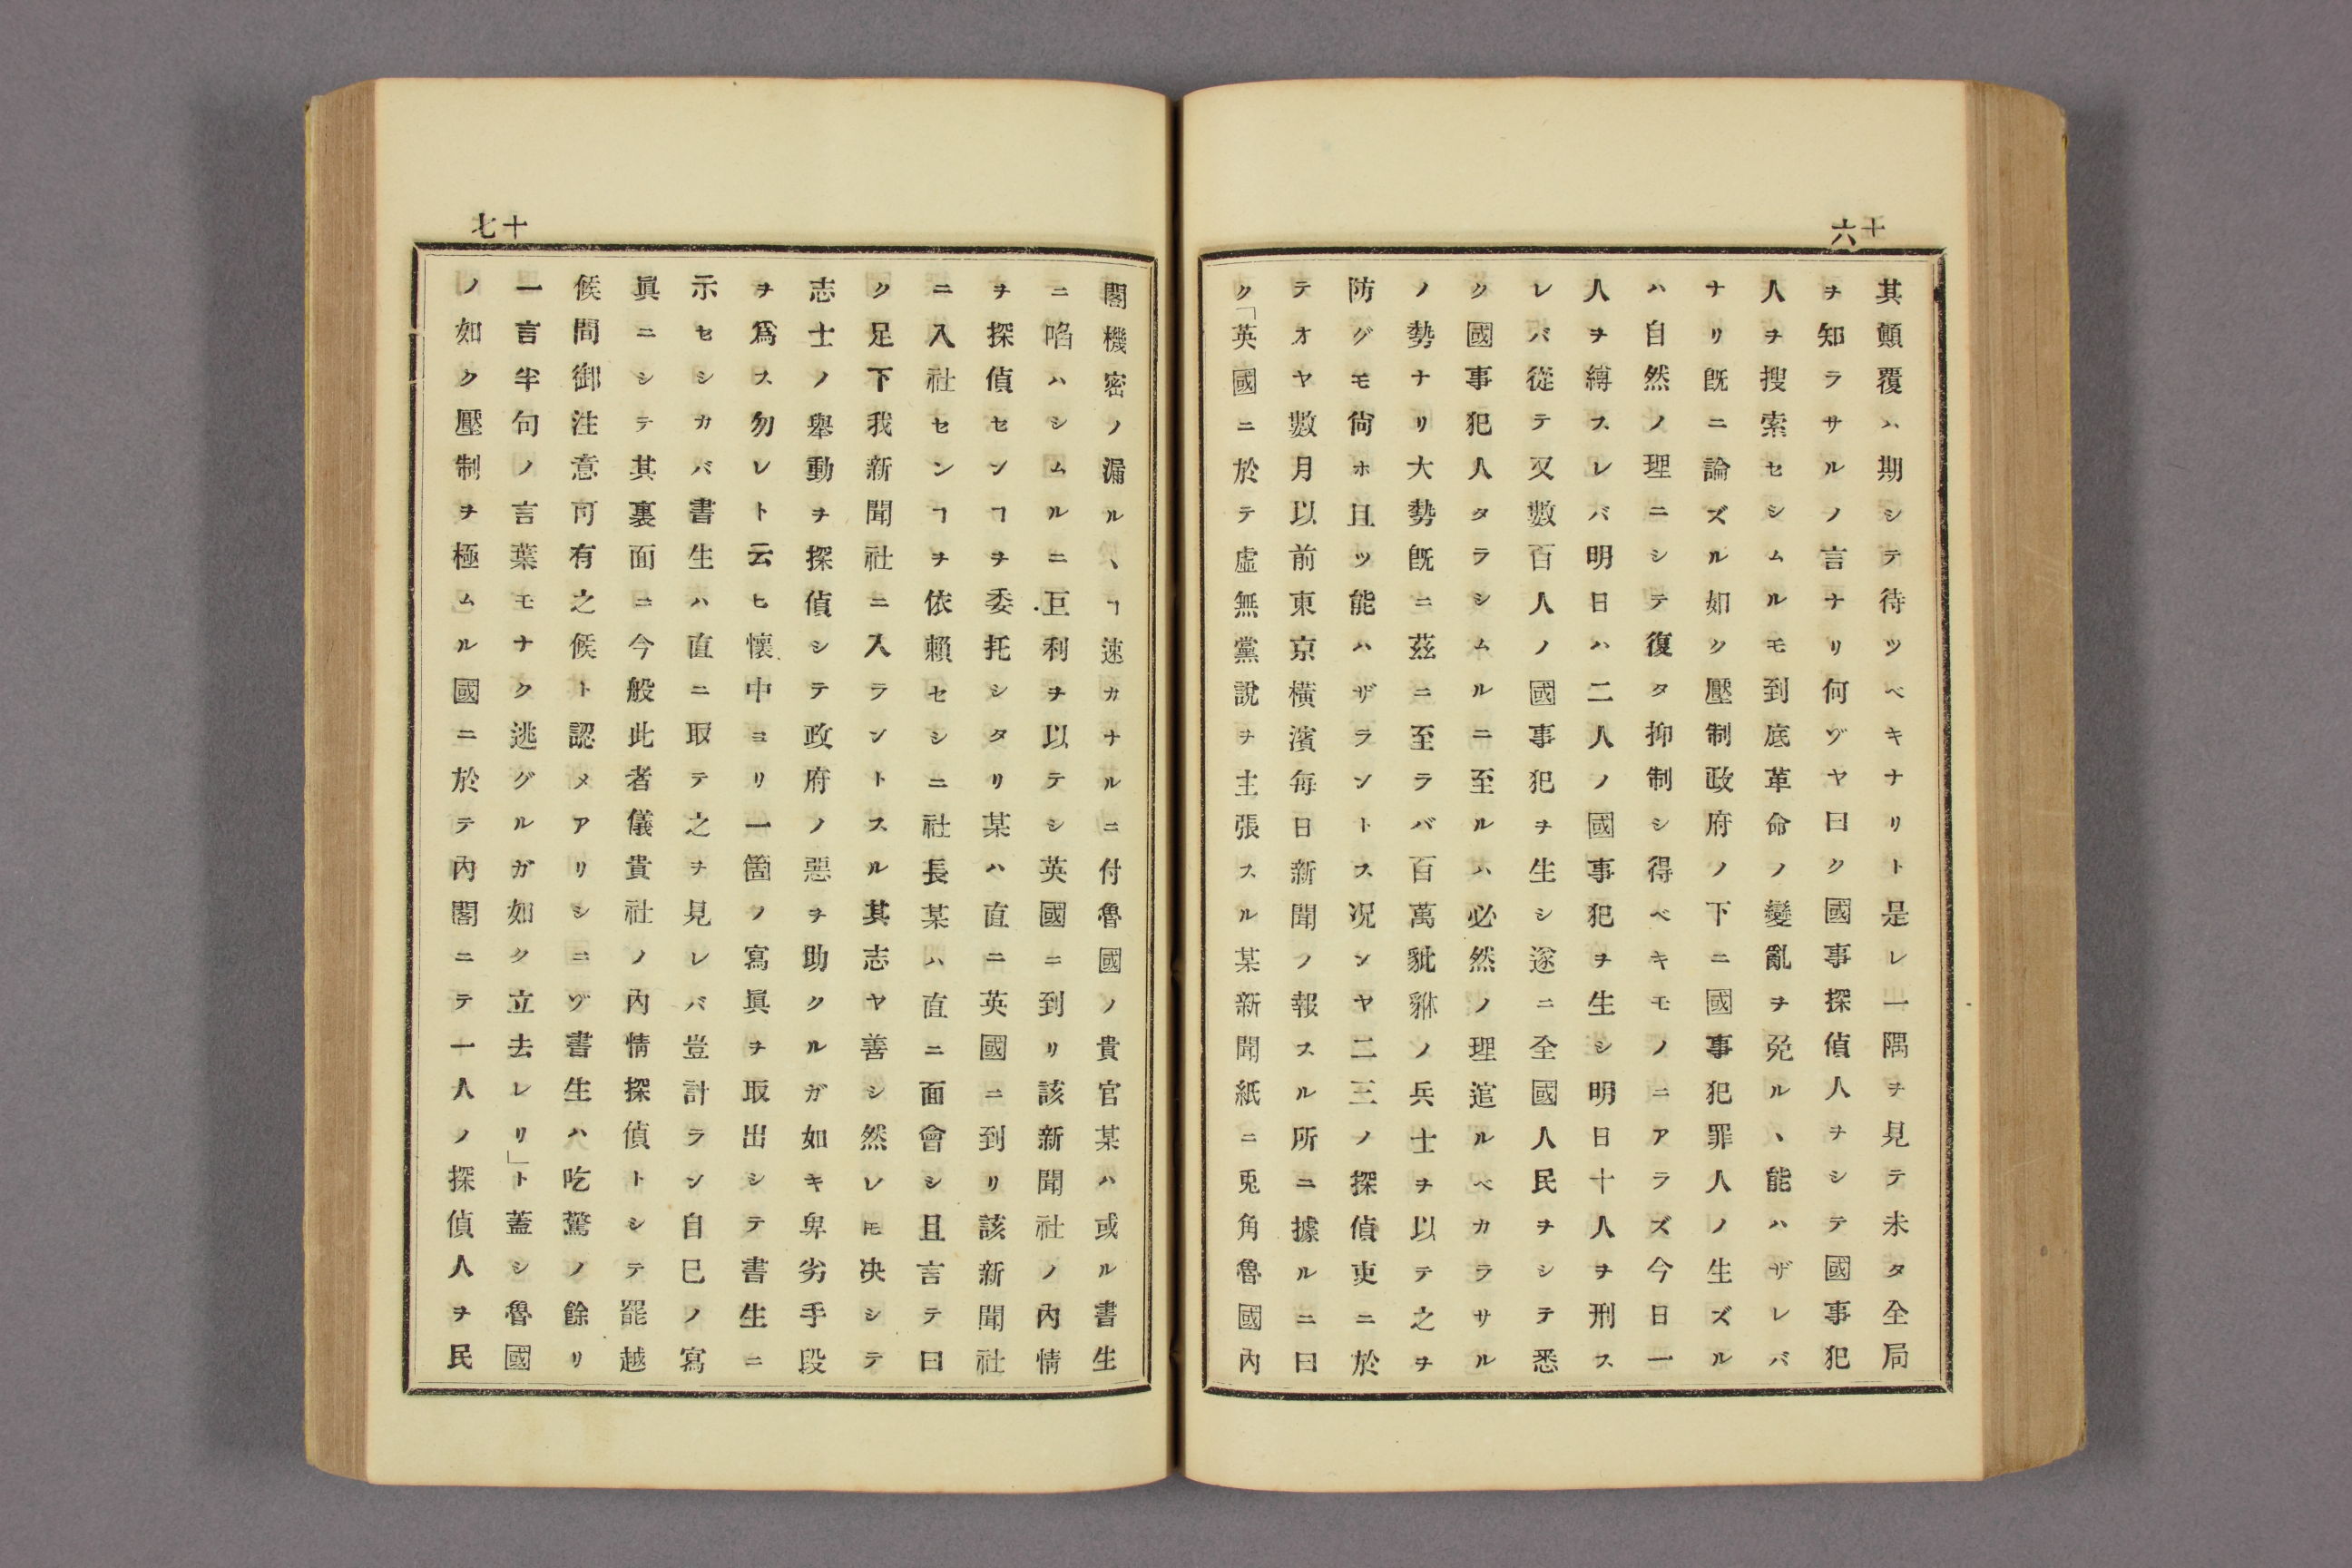 十六
其顚覆ハ期シテ待ツベキナリト是レ一隅ヲ見テ未タ全局
ヲ知ラサルノ言ナリ何ヅヤ曰ク國事探偵人ヲシテ國事犯
人ヲ搜索セシムルモ到底革命ノ變亂ヲ免ルヽ能ハザレバ
ナリ旣ニ論ズル如ク壓制政府ノ下ニ國事犯罪人ノ生ズル
ハ自然ノ理ニシテ復タ抑制シ得ベキモノニアラズ今日一
人ヲ縛スレバ明日ハ二人ノ國事犯ヲ生シ明日十人ヲ刑ス
レバ從テ又數百人ノ國事犯ヲ生シ遂ニ全國人民ヲシテ悉
ク國事犯人タラシムルニ至ルハ必然ノ理逭ルベカラサル
ノ勢ナリ大勢旣ニ茲ニ至ラバ百萬豼貅ノ兵士ヲ以テ之ヲ
防グモ尙ホ且ツ能ハザラントス况ンヤ二三ノ探偵吏ニ於
テオヤ數月以前東京橫濱每日新聞ノ報スル所ニ據ルニ曰
ク「英國ニ於テ虛無黨說ヲ主張スル某新聞紙ニ兎角魯國內
十七
閣機密ノ漏ルヽヿ速カナルニ付魯國ノ貴官某ハ或ル書生
ニ啗ハシムルニ巨利ヲ以テシ英國ニ到リ該新聞社ノ內情
ヲ探偵センヿヲ委托シタリ某ハ直ニ英國ニ到リ該新聞社
ニ入社センヿヲ依賴セシニ社長某ハ直ニ面會シ且言テ曰
ク足下我新聞社ニ入ラントスル其志ヤ善シ然レ𪜈决シテ
志士ノ擧動ヲ探偵シテ政府ノ惡ヲ助クルガ如キ卑劣手段
ヲ爲ス勿レト云ヒ懷中ヨリ一箇ノ寫眞ヲ取出シテ書生ニ
示セシカバ書生ハ直ニ取テ之ヲ見レバ豈計ラン自己ノ寫
眞ニシテ其裏面ニ今般此者儀貴社ノ內情探偵トシテ罷越
候間御注意可有之候ト認メアリシニゾ書生ハ吃驚ノ餘リ
一言半句ノ言葉モナク逃グルガ如ク立去レリ」ト蓋シ魯國
ノ如ク壓制ヲ極ムル國ニ於テ內閣ニテ一人ノ探偵人ヲ民